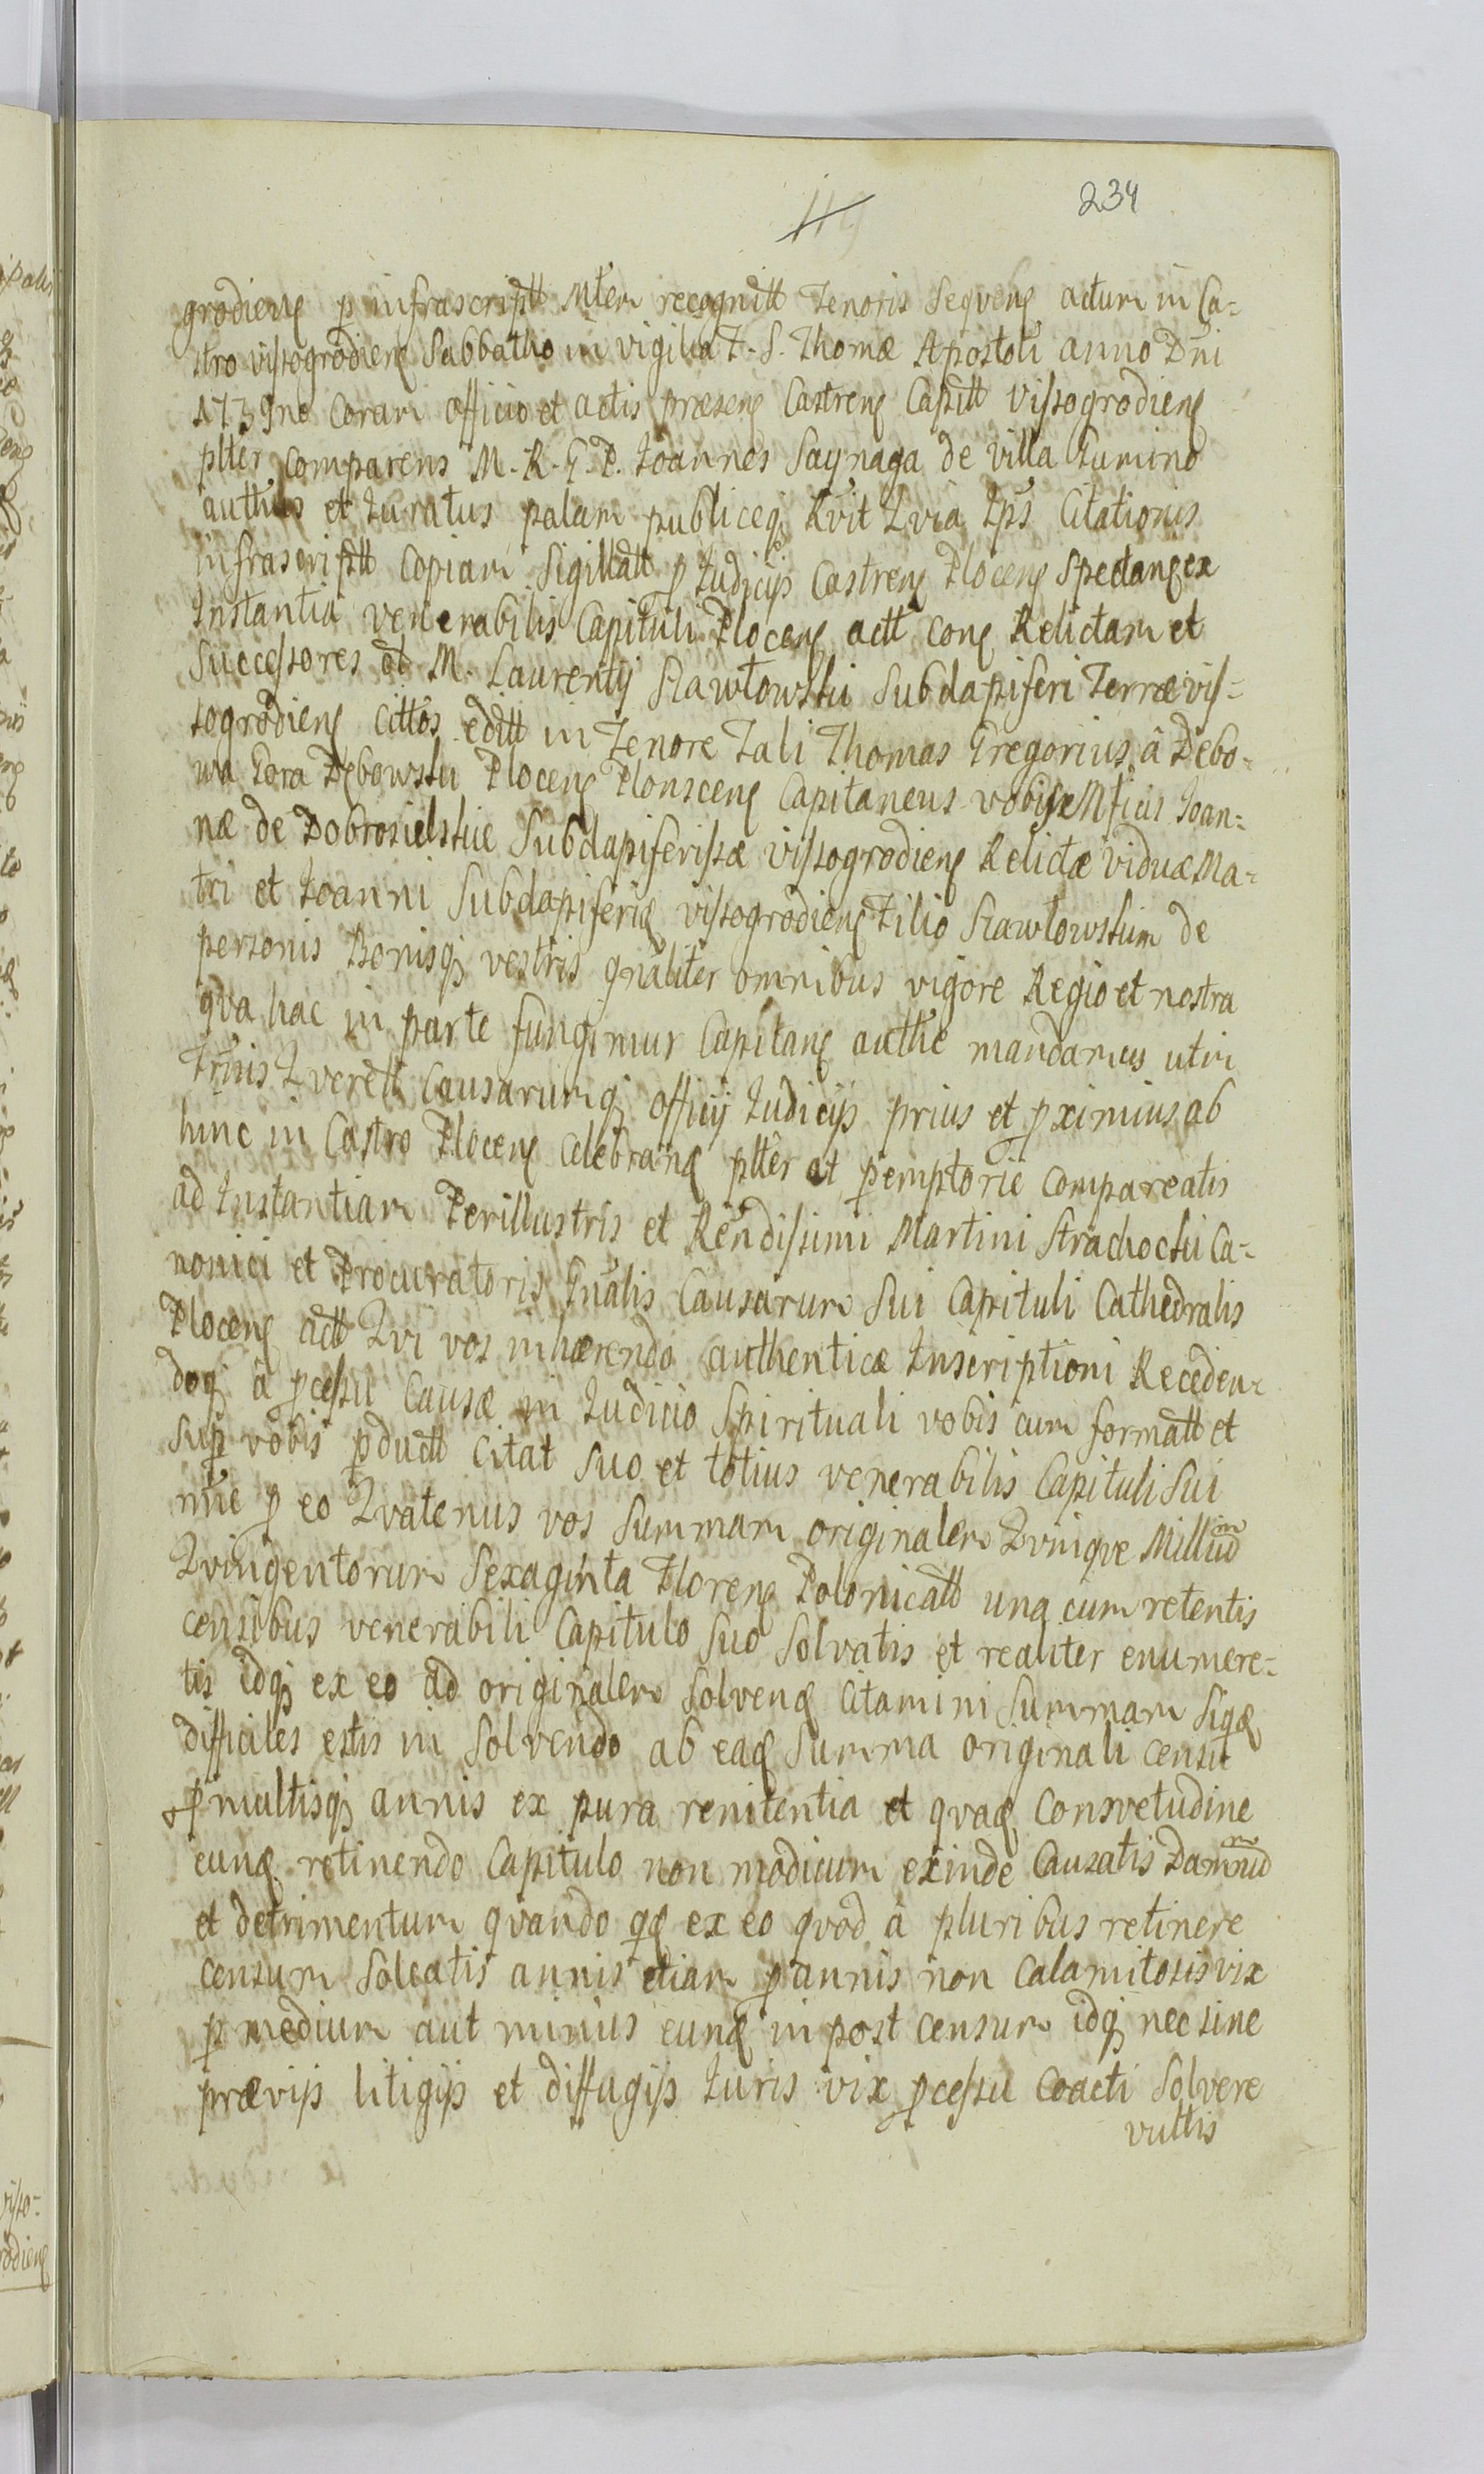 119
234
grodieng p infrascriptt Mtem recognitt Tenoris Seqveng actum in Ca=
stro vissogrodieng Sabbatho in vigilia F. S. Thomæ Apostoli anno Dni
1739no Coram officio et actis præseng Castreng Capitt Vissogrodieng
plter comparens M. R. G. P. Joannes Saynaga de villa Gumino
authus et Juratus palam publiceq Rvit Qvia Ips Citationis
infrascriptt Copiam Sigillatt p Judicijs Castreng Ploceng Spectang ex
Instantia venerabilis Capituli Ploceng actt cong Relictam et
Successores ol M. Laurentij Szawłowski Subdapiferi Terræ vis=
sogrodieng Cittos editt in Tenore Tali Thomas Gregorius â Debo=
wa Gora Dębowski Ploceng Plonsceng Capitaneus vobis Mficis Joan=
næ de Dobrosielskie Subdapiferissæ vissogrodieng Relictæ viduæ Ma=
tri et Joanni Subdapiferig vissogrodieng Filio Szawłowskim de
personis Bonisq vestris gnâliter omnibus vigore Regio et nostra
qva hac in parte fungimur Capitang authe mandamus utin
Trnis Qverett Causarumq officij Judicijs prius et pximius ab
hinc in Castro Ploceng Celebrang plter et pemptorie compareatis
ad Instantiam Perillustris et Rendissimi Martini Strachocki Ca=
nonici et Procuratoris Gnalis Causarum Sui Capituli Cathedralis
Ploceng actt Qvi vos inhærendo authenticæ Inscriptioni Receden=
doq â pcessu Causæ in Judicio Spirituali vobis cum formatt et
sup vobis pductt Citat suo et totius venerabilis Capituli Sui
nne p eo Qvatenus vos Summam originalem Qvinqve Millium
Qvingentorum Sexaginta Floreng Polonicatt una cum retentis
censibus venerabili Capitulo Suo Solvatis et realiter enumere=
tis idq ex eo ad originalem Solveng Citamini Summam Siqg
difficiles estis in Solvendo ab eag Summa originali censu
pmultisq annis ex pura renitentia et qvag Consvetudine
eung retinendo Capitulo non modicum exinde Causatis Damnum
et detrimentum qvando qg ex eo qvod â pluribus retinere
censum Soleatis annis etiam pannis non Calamitosis vix
p medium aut minus eung in post censum idq nec sine
prævijs litigijs et diffugijs Juris vix pcessu Coacti Solvere
vultis